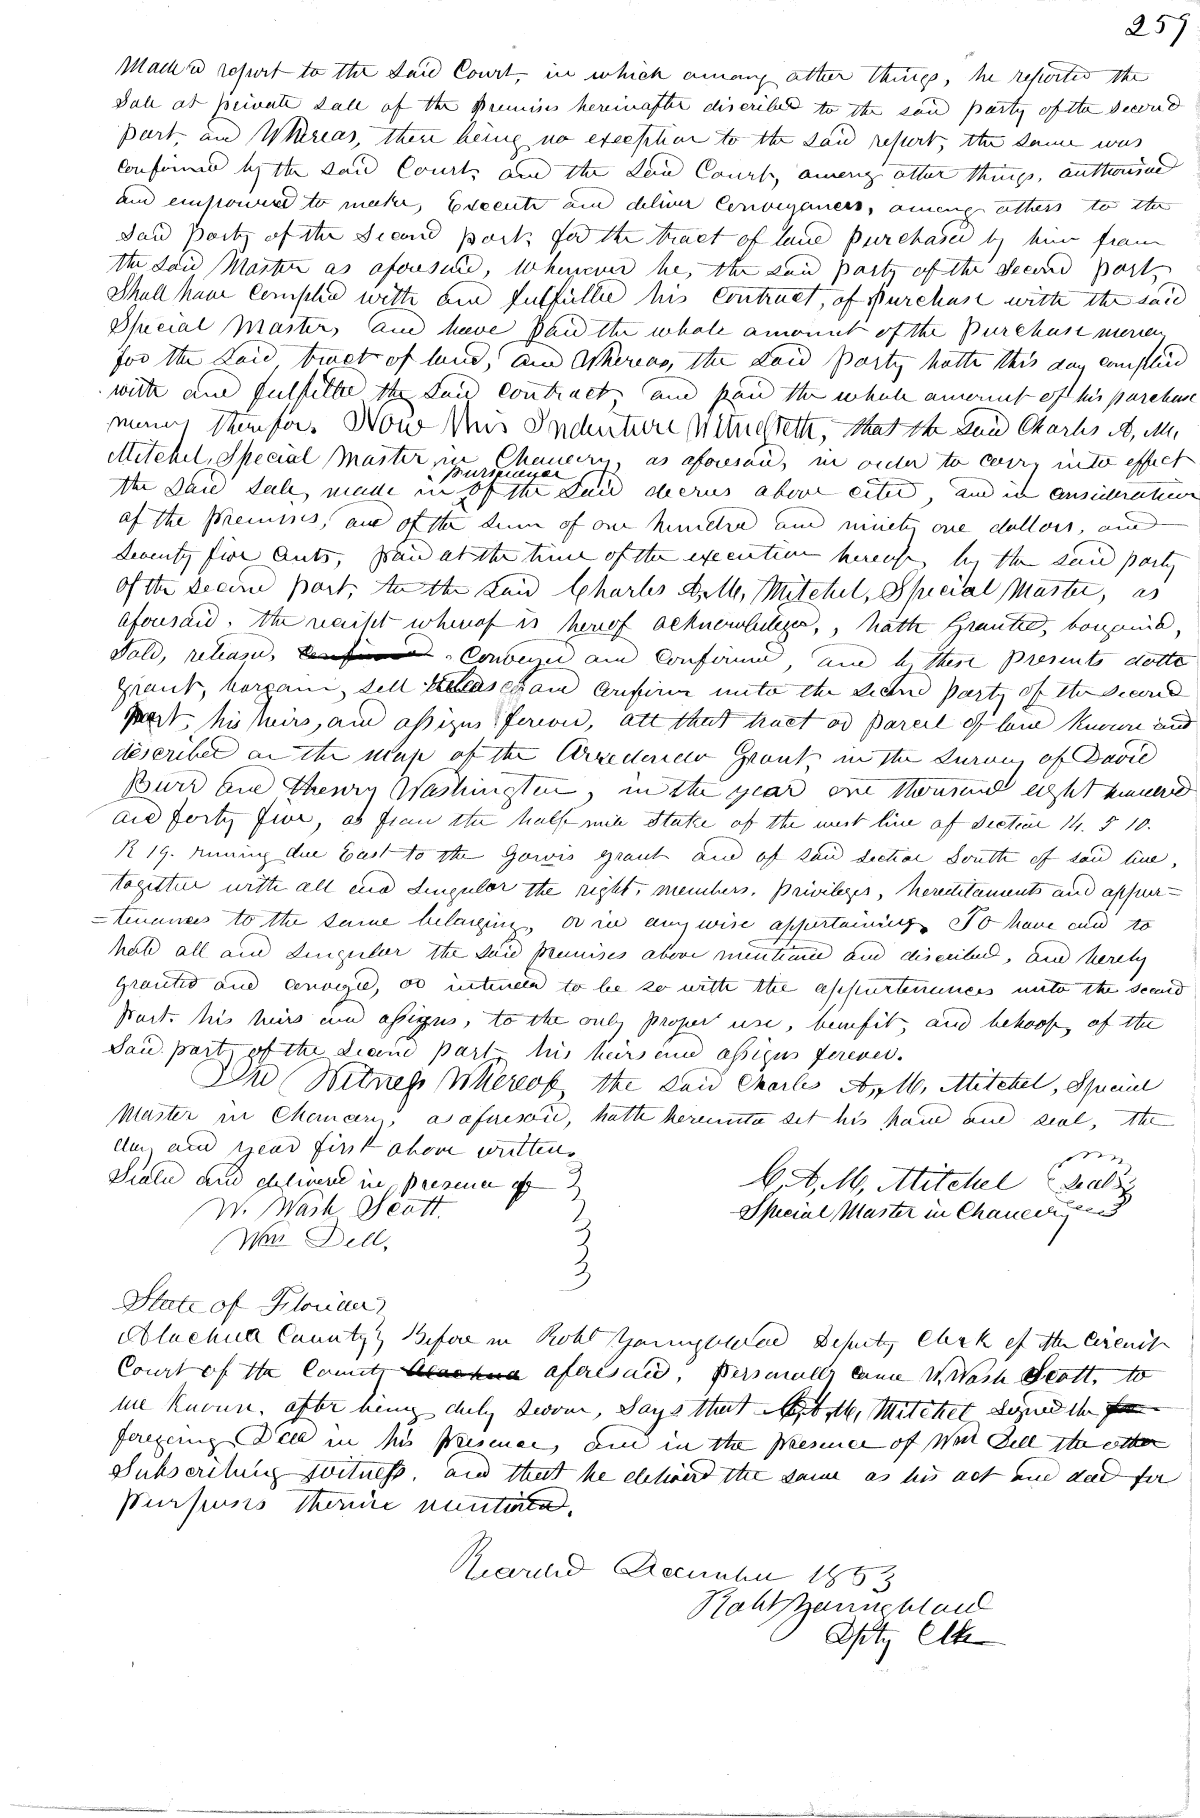 259
Made a report to the said Court, in which among other things, he reported the
Sale at private sale of the premises hereinafter discribed to the said party of the second
part, and Whereas, there being no exception to the said report, the same was
confirmed by the said Court, and the said Court, among other things, authorised
and empowered to make, Execute and deliver Conveyances, among others to the
said party of the second part, for the tract of land purchased by him from
the said Master as aforesaid, whenever he, the said party of the second part,
Shall have complied with and fulfilled his Contract, of purchase with the said
Special Master, and have paid the whole amount of the purchase money
for the said tract of land, and Whereas, the said party hath this day complied
with and fulfilled the said Contract, and paid the whole amount of his purchase
money therefor. Now this Indenture Witnesseth, that the said Charles A. M.
Mitchel, Special Master in Chancery, as aforesaid, in order to carry into effect
the said sale, made in pursuance of the said decrees above cited, and in consideration
of the premises, and of the sum of one hundred and ninety one dollars, and
seventy five cents, paid at the time of the execution hereof, by the said party
of the second part, to the said Charles A. M. Mitchel, Special Master, as
aforesaid, the receipt whereof is hereof acknowledged, hath Granted, bargained,
Sold, released, confirmed Conveyed and confirmed, and by these presents doth
grant, bargain, sell release and confirm unto the second party of the second
part, his heirs, and assigns forever, all that tract or parcel of land known and
described on the map of the Arredondo Grant, in the survey of David
Burr and Henry Washington, in the year one thousand eight hundred
and forty five, as from the half mile stake of the west line of section 14. T 10.
R 19. running due East to the Garvis grant and of said section South of said line,
together with all and singular the right, members, privileges, hereditaments and appur=
=tenances to the same belonging, or in anywise appertaining. To have and to
hold all and singular the said premises above mentioned and discribed, and hereby
granted and conveyed, or intended to be so with the appurtenances unto the second
part, his heirs and assigns, to the only proper use, benefit, and behoof, of the
said party of the second part, his heirs and assigns forever.
In Witness Whereof, the said Charles A. M. Mitchel, Special
Master in Chancery, as aforesaid, hath hereunto set his hand and seal, the
day and year first above written.
Sealed and delivered in presence of
W. Wash Scott.
Wm Dell.
C. A. M. Mitchel (seal)
Special Master in Chancery
State of Florida
Alachua County Before me Robt Youngblood Deputy Clerk of the Circuit
Court of the County Alachua aforesaid, personally came W. Wash Scott, to
me known, after being duly sworn, says that C. A. M. Mitchel signed the fo
foregoing Deed in his presence, and in the presence of Wm Dell the other
Subscribing witness, and that he delivered the same as his act and deed for
purposes therein mentioned.
Recorded December 1853
Robt Youngblood
Dpty Clk